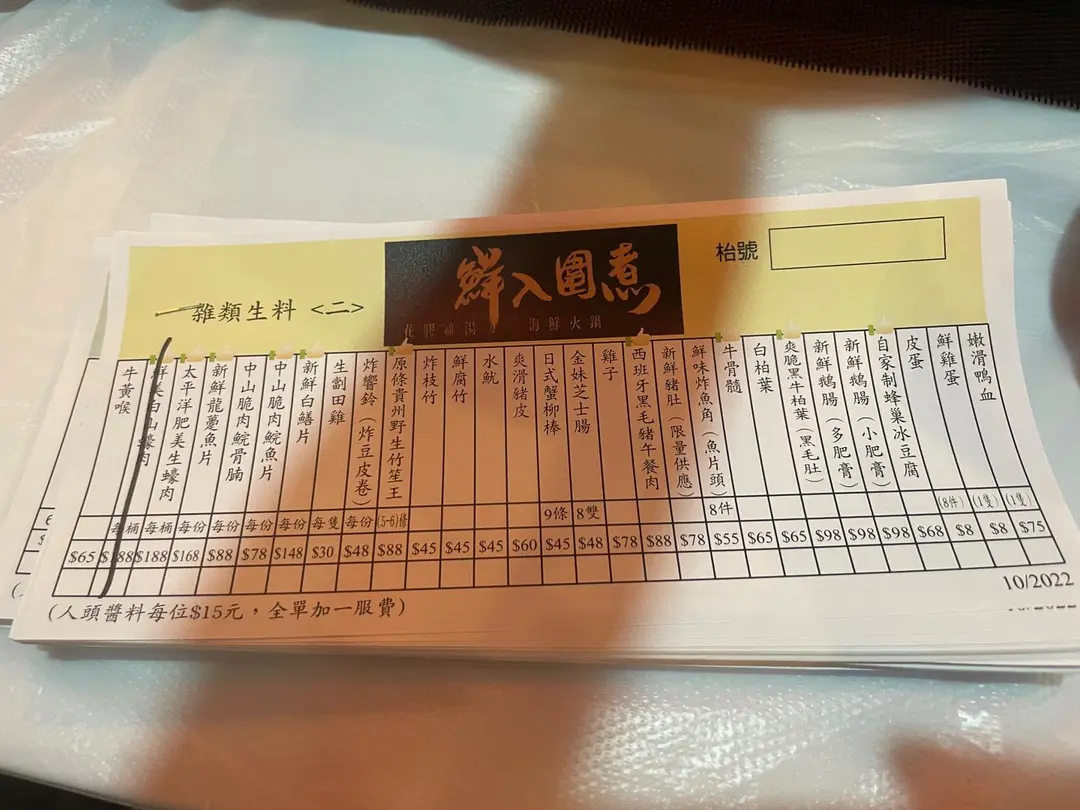 鮮入圍煮
海鮮火鍋
枱號
雜類生料 <二>
嫩滑鴨血
鮮雞蛋
皮蛋
自家制蜂巢冰豆腐
新鮮鵝腸（小肥膏）
新鮮鵝腸（多肥膏）
爽脆黑牛柏葉（黑毛肚）
白柏葉
牛骨髓
鮮味炸魚角（魚片頭）
新鮮豬肚（限量供應）
西班牙黑毛豬午餐肉
雞子
金妹芝士腸
日式蟹柳棒
爽滑豬皮
水魷
鮮腐竹
炸枝竹
原條貴州野生竹笙王
炸響鈴（炸豆皮卷）
生劏田雞
新鮮白鱔片
中山脆肉鯇魚片
中山脆肉鯇骨腩
新鮮龍躉魚片
太平洋肥美生蠔肉
鮮美白蠔肉
牛黃喉
每桶 每桶 每份 每份 每份 每份 每隻 每份 (5-6)條 9條 8雙 8件 (8件) (1隻) (1隻)
$65 $188 $188 $168 $88 $78 $148 $30 $48 $88 $45 $45 $45 $60 $45 $48 $78 $88 $78 $55 $65 $65 $98 $98 $98 $68 $8 $8 $75
10/2022
(人頭醬料每位$15元，全單加一服費)